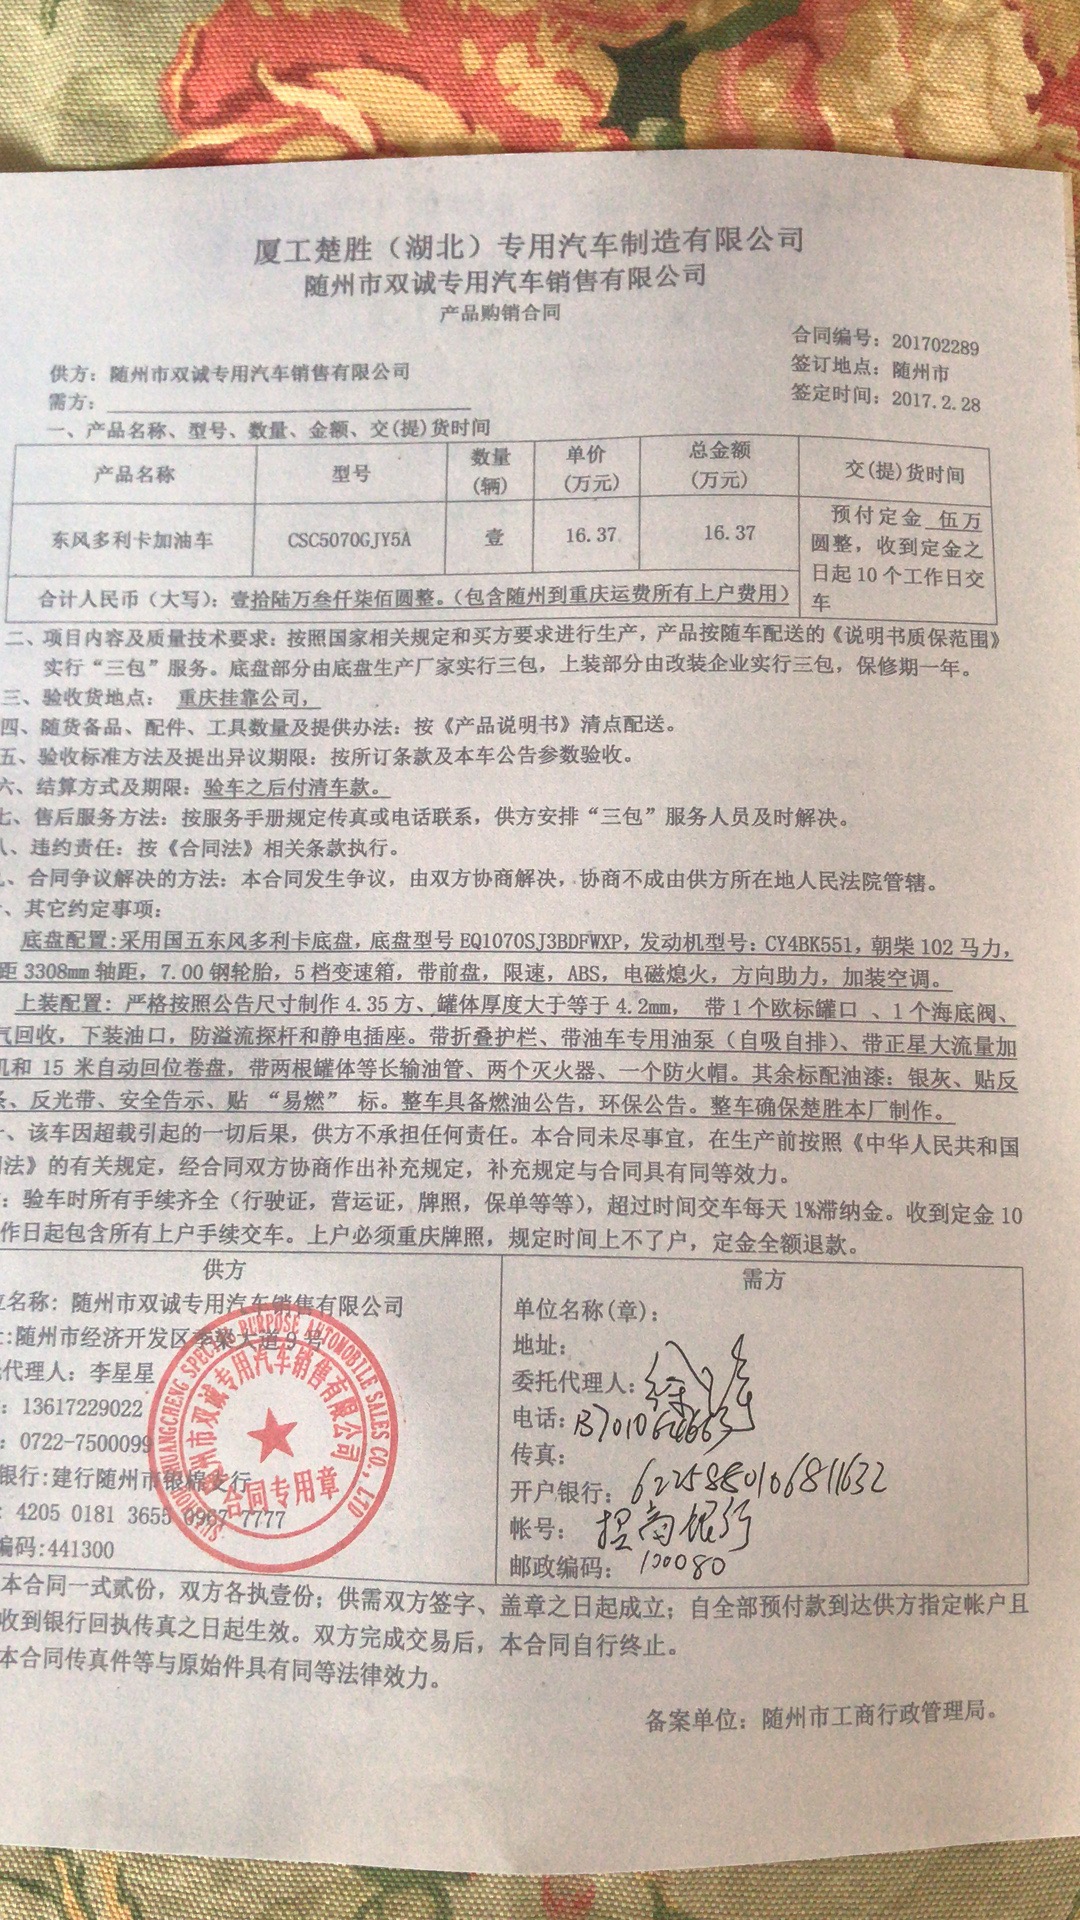 厦工楚胜（湖北）专用汽车制造有限公司
随州市双诚专用汽车销售有限公司
产品购销合同
合同编号：201702289
供方：随州市双诚专用汽车销售有限公司
签订地点：随州市
需方：
签定时间：2017.2.28
一、产品名称、型号、数量、金额、交(提)货时间
产品名称 型号 数量(辆) 单价(万元) 总金额(万元) 交(提)货时间
东风多利卡加油车 CSC5070GJY5A 壹 16.37 16.37 预付定金 伍万圆整，收到定金之日起10个工作日交车
合计人民币（大写）：壹拾陆万叁仟柒佰圆整。（包含随州到重庆运费所有上户费用）
二、项目内容及质量技术要求：按照国家相关规定和买方要求进行生产，产品按随车配送的《说明书质保范围》
实行“三包”服务。底盘部分由底盘生产厂家实行三包，上装部分由改装企业实行三包，保修期一年。
三、验收货地点： 重庆挂靠公司，
四、随货备品、配件、工具数量及提供办法：按《产品说明书》清点配送。
五、验收标准方法及提出异议期限：按所订条款及本车公告参数验收。
六、结算方式及期限：验车之后付清车款。
七、售后服务方法：按服务手册规定传真或电话联系，供方安排“三包”服务人员及时解决。
、违约责任：按《合同法》相关条款执行。
、合同争议解决的方法：本合同发生争议，由双方协商解决，协商不成由供方所在地人民法院管辖。
、其它约定事项：
底盘配置：采用国五东风多利卡底盘，底盘型号EQ1070SJ3BDFWXP，发动机型号：CY4BK551，朝柴102马力，
距3308mm轴距，7.00钢轮胎，5档变速箱，带前盘，限速，ABS，电磁熄火，方向助力，加装空调。
上装配置：严格按照公告尺寸制作4.35方、罐体厚度大于等于4.2mm， 带1个欧标罐口 、1个海底阀、
气回收，下装油口，防溢流探杆和静电插座。带折叠护栏、带油车专用油泵（自吸自排）、带正星大流量加
机和 15 米自动回位卷盘，带两根罐体等长输油管、两个灭火器、一个防火帽。其余标配油漆：银灰、贴反
条、反光带、安全告示、贴 “易燃” 标。整车具备燃油公告，环保公告。整车确保楚胜本厂制作。
一、该车因超载引起的一切后果，供方不承担任何责任。本合同未尽事宜，在生产前按照《中华人民共和国
法》的有关规定，经合同双方协商作出补充规定，补充规定与合同具有同等效力。
：验车时所有手续齐全（行驶证，营运证，牌照，保单等等），超过时间交车每天1%滞纳金。收到定金10
作日起包含所有上户手续交车。上户必须重庆牌照，规定时间上不了户，定金全额退款。
供方
位名称：随州市双诚专用汽车销售有限公司
：随州市经济开发区季梁大道9号
代理人：李星星
：13617229022
：0722-7500099
银行：建行随州市银棉支行
：4205 0181 3655 0967 7777
编码：441300
随州市双诚专用汽车销售有限公司
合同专用章
需方
单位名称(章)：
地址：
委托代理人：
电话：13701064663
传真：
开户银行：6225880106811632
帐号： 招商银行
邮政编码： 100080
本合同一式贰份，双方各执壹份；供需双方签字、盖章之日起成立；自全部预付款到达供方指定帐户且
收到银行回执传真之日起生效。双方完成交易后，本合同自行终止。
本合同传真件等与原始件具有同等法律效力。
备案单位：随州市工商行政管理局。